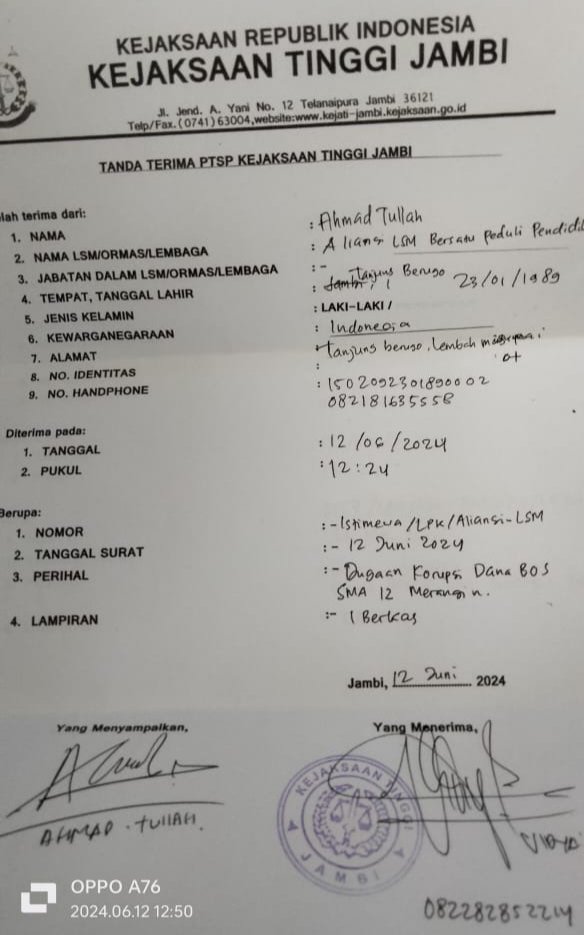 KEJAKSAAN REPUBLIK INDONESIA
KEJAKSAAN TINGGI JAMBI
Jl. Jend. A. Yani No. 12 Telanaipura Jambi 36121
Telp/Fax.(0741)63004,website:www.kejati-jambi.kejaksaan.go.id
TANDA TERIMA PTSP KEJAKSAAN TINGGI JAMBI
lah terima dari:
1. NAMA : Ahmad Tullah
2. NAMA LSM/ORMAS/LEMBAGA : Aliansi LSM Bersatu Peduli Pendidi
3. JABATAN DALAM LSM/ORMAS/LEMBAGA : -
4. TEMPAT, TANGGAL LAHIR : Jambi, Tanjung Berugo 23/01/1989
5. JENIS KELAMIN : LAKI-LAKI /
6. KEWARGANEGARAAN : Indonesia
7. ALAMAT : Tanjung berugo, lembah
8. NO. IDENTITAS : 1502092301890002
9. NO. HANDPHONE 082181635558
Diterima pada:
1. TANGGAL : 12/06/2024
2. PUKUL : 12:24
Berupa:
1. NOMOR : - Istimewa/LPK/Aliansi-LSM
2. TANGGAL SURAT : - 12 Juni 2024
3. PERIHAL : - Dugaan Korupsi Dana BOS
SMA 12 Merangin.
4. LAMPIRAN :- 1 Berkas
Jambi, 12 Juni 2024
Yang Menyampaikan, Yang Menerima,
KEJAKSAAN TINGGI
JAMBI
AHMAD. TULLAH.
082282852214
OPPO A76
2024.06.12 12:50